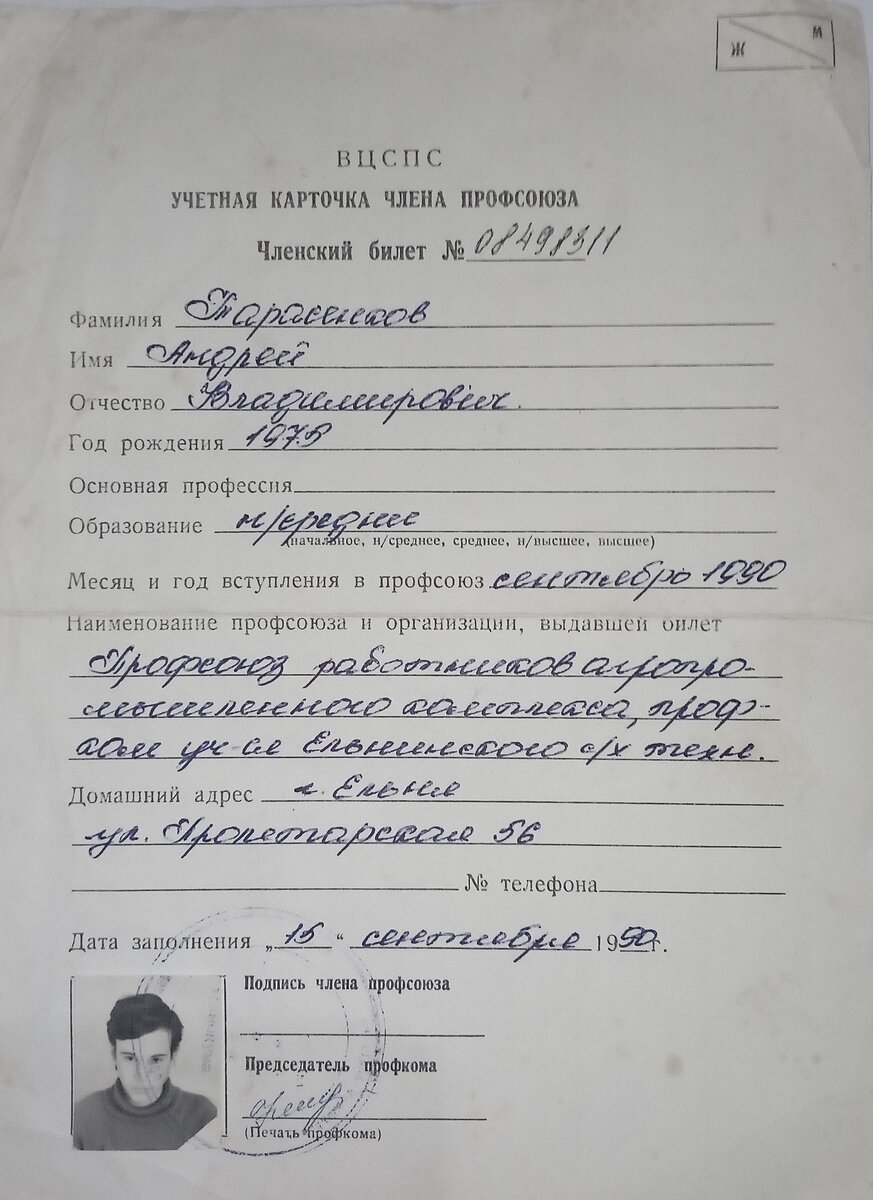 Ж М
ВЦСПС
УЧЕТНАЯ КАРТОЧКА ЧЛЕНА ПРОФСОЮЗА
Членский билет № 08498311
Фамилия Тарасенков
Имя Андрей
Отчество Владимирович.
Год рождения 1975
Основная профессия
Образование н/средние
(начальное, н/среднее, среднее, н/высшее, высшее)
Месяц и год вступления в профсоюз сентябрь 1990
Наименование профсоюза и организации, выдавшей билет
Профсоюз работников агропро-
мышленного комплекса, проф-
ком уч-ся Ельнинского с/х техн.
Домашний адрес г. Ельня
ул. Пролетарская 56
№ телефона
Дата заполнения „15“ сентября 1990г.
Подпись члена профсоюза
Председатель профкома
(Печать профкома)